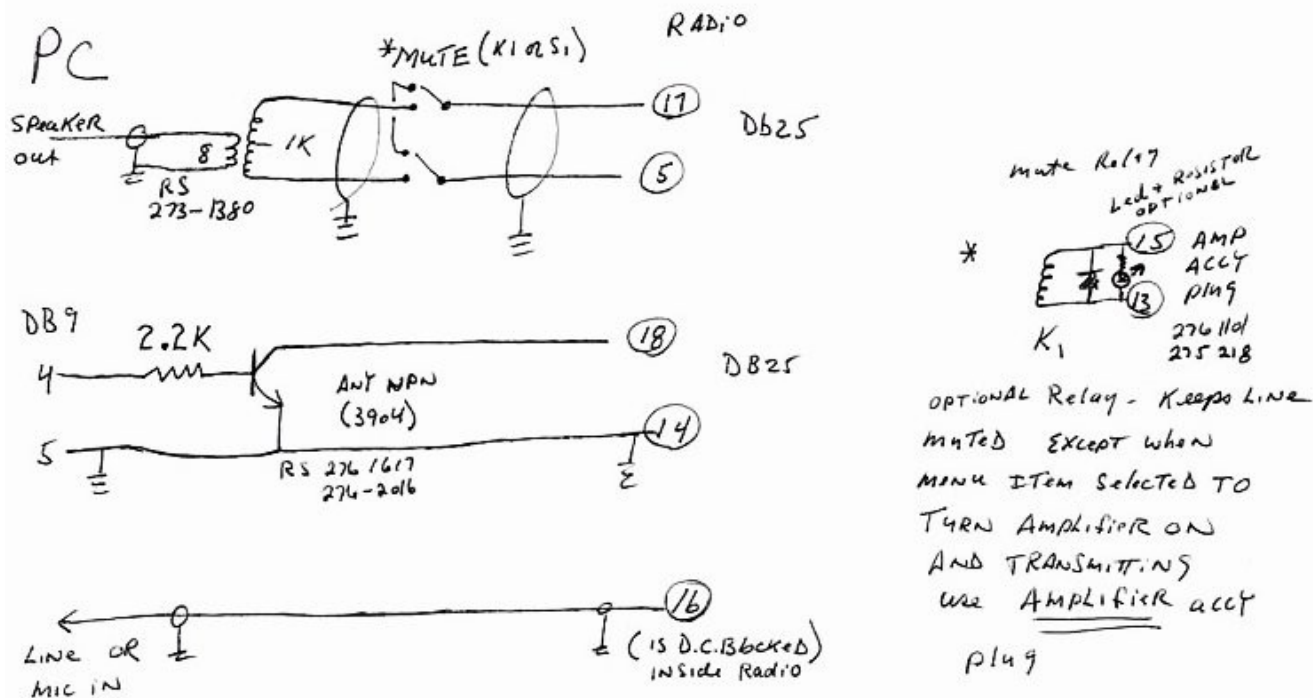 PC
RADiO
*MUTE (K1 OR S1)
SPEAKER
out
8
1K
RS
273-1380
17
5
Db25
DB9
4
2.2K
18
ANY NPN
(3904)
DB25
5
14
RS 276 1617
276-2016
16
LINE OR
MIC IN
(IS D.C. Blocked)
INSide Radio
mute Relay
Led + RESISTOR
OPTIONAL
*
15
AMP
ACCY
plug
13
K1
276 1101
275 218
OPTIONAL Relay - Keeps LINE
muTED EXcepT when
MENU ITem SelecTeD TO
TURN AmpLifieR ON
AND TRANSmiTTiNg
use AmpLifieR accY
plug